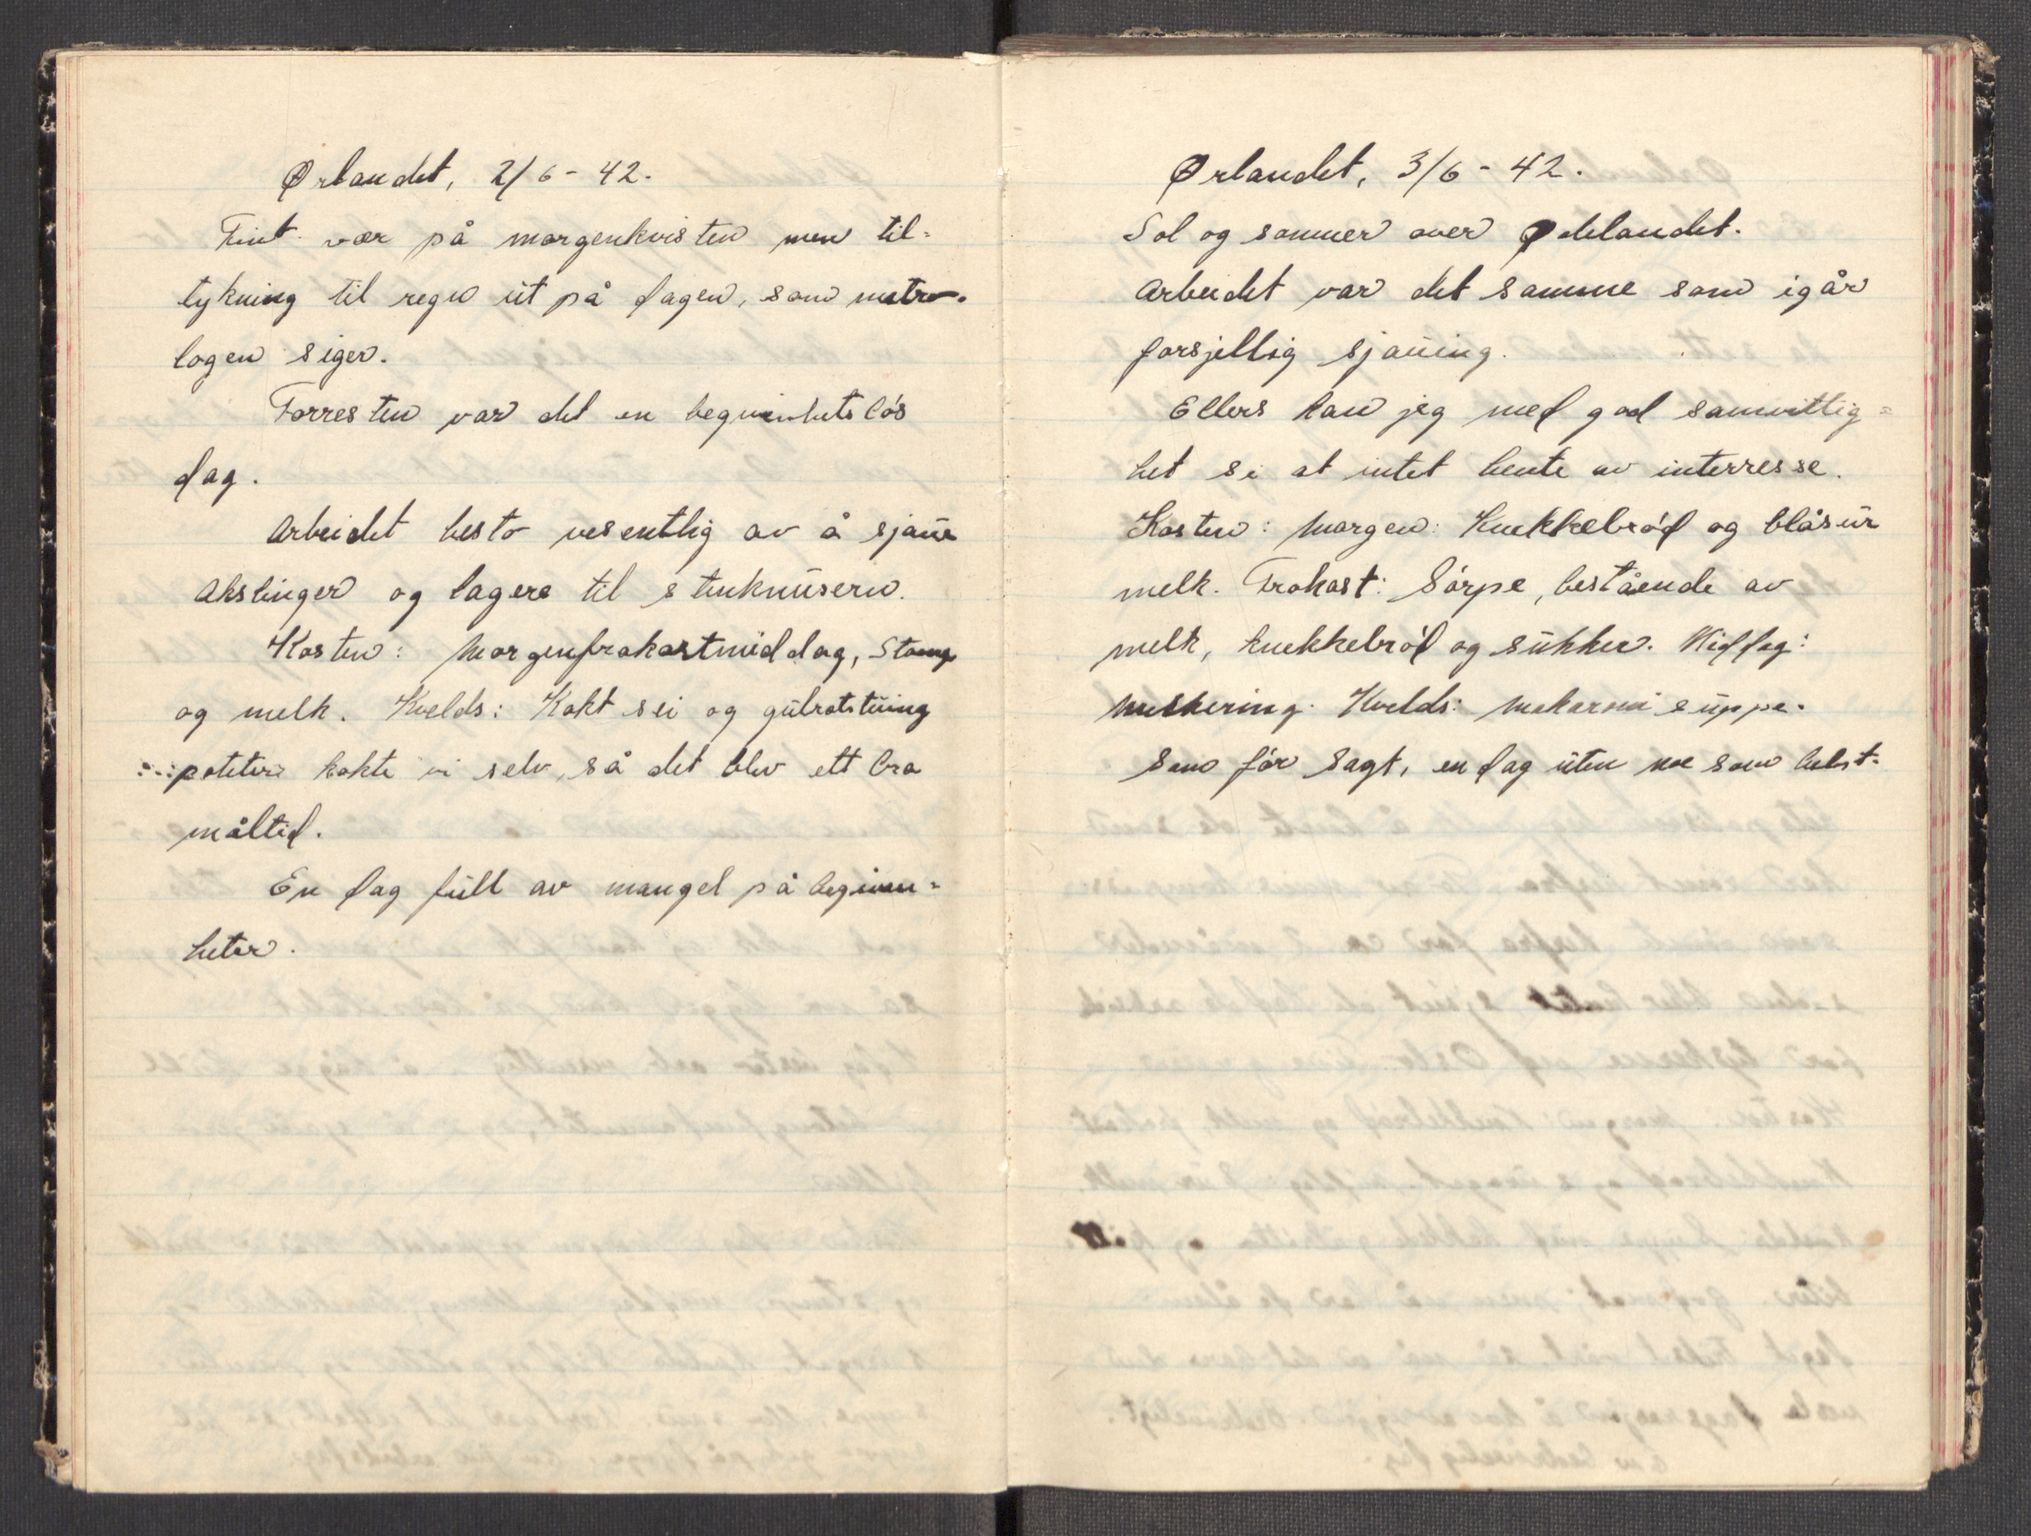 Ørlandet, 2/6 - 42.
Fint vær på morgenkvisten men til-
tykning til regn ut på dagen, som metro-
logen siger.
Forresten var det en begivenhetsløs
dag.
Arbeidet besto vesentlig av å sjaue
Akslinger og lagere til stenknuseren.
Kosten: Morgenfrokostmiddag, Stomp
og melk. Kvelds: Kokt sei og gulrotstuing
poteter kokte vi selv, så det blev ett bra
måltid.
En dag full av mangel på begiven-
heter.
Ørlandet, 3/6 - 42.
Sol og sommer over Ødelandet.
Arbeidet var det samme som igår
forsjellig sjauing.
Ellers kan jeg med god samvittig-
het si at intet hente av interresse.
Kosten: Morgen: Knekkebrød og blåsur
melk. Frokost: Sørpe, bestående av
melk, knekkebrød og sukker. Middag:
Kvelds: Makaroni suppe.
Som før sagt, en dag uten noe som helst.